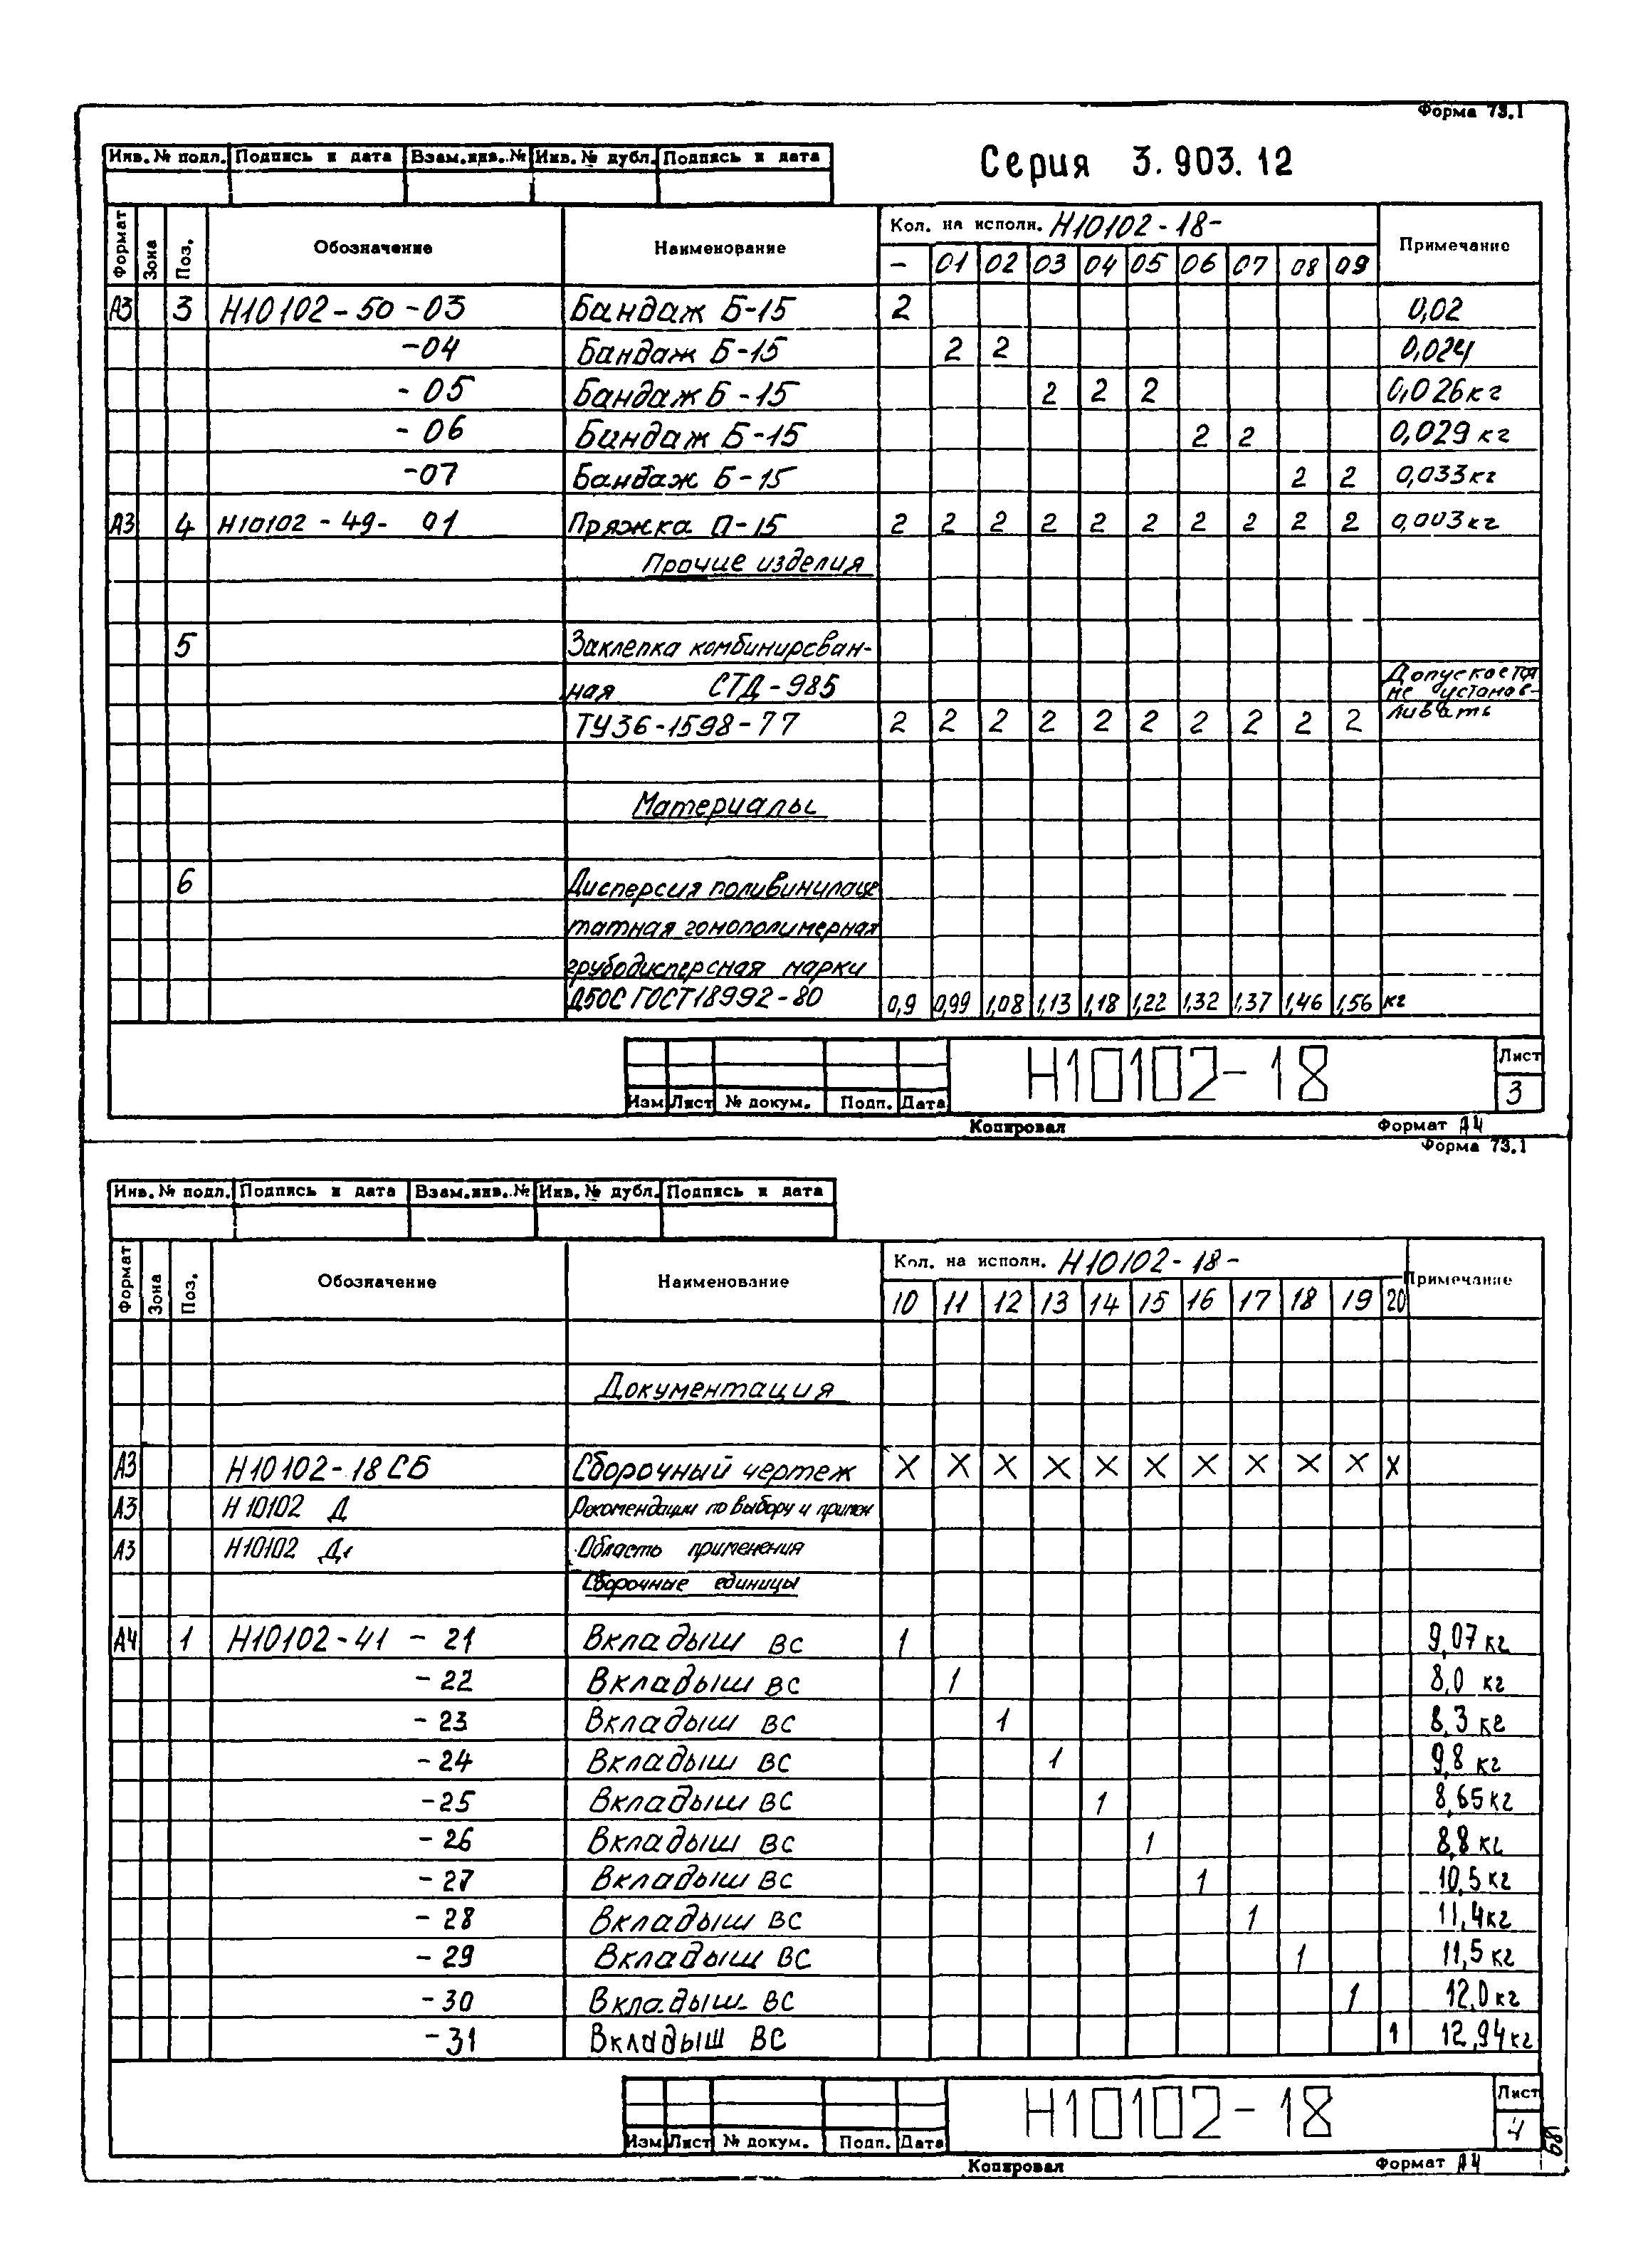 Форма 73.1
Инв. № подл. Подпись и дата Взам.инв.№ Инв. № дубл. Подпись и дата
Серия 3.903.12
Формат Зона Поз. Обозначение Наименование Кол. на исполн. Н10102-18- Примечание
- 01 02 03 04 05 06 07 08 09
А3 3 Н10102-50-03 Бандаж Б-15 2 0,02
-04 Бандаж Б-15 2 2 0,024
-05 Бандаж Б-15 2 2 2 0,026кг
-06 Бандаж Б-15 2 2 0,029 кг
-07 Бандаж Б-15 2 2 0,033кг
А3 4 Н10102-49-01 Пряжка П-15 2 2 2 2 2 2 2 2 2 2 0,003кг
Прочие изделия
5 Заклепка комбинирован-
ная СТД-985 Допускается
не установ-
ТУ36-1598-77 2 2 2 2 2 2 2 2 2 2 ливать
Материалы
6 Дисперсия поливинилаце
татная гомополимерная
грубодисперсная марки
Д50С ГОСТ18992-80 0,9 0,99 1,08 1,13 1,18 1,22 1,32 1,37 1,46 1,56 кг
Н10102-18 Лист
3
Изм Лист № докум. Подп. Дата
Копировал Формат А4
Форма 73.1
Инв. № подл. Подпись и дата Взам.инв.№ Инв. № дубл. Подпись и дата
Формат Зона Поз. Обозначение Наименование Кол. на исполн. Н10102-18- Примечание
10 11 12 13 14 15 16 17 18 19 20
Документация
А3 Н10102-18СБ Сборочный чертеж X X X X X X X X X X X
А3 Н10102 Д Рекомендации по выбору и примен
А3 Н10102 Д1 Область применения
Сборочные единицы
А4 1 Н10102-41-21 Вкладыш ВС 1 9,07 кг
-22 Вкладыш ВС 1 8,0 кг
-23 Вкладыш ВС 1 8,3 кг
-24 Вкладыш ВС 1 9,8 кг
-25 Вкладыш ВС 1 8,65кг
-26 Вкладыш ВС 1 8,8 кг
-27 Вкладыш ВС 1 10,5кг
-28 Вкладыш ВС 1 11,4кг
-29 Вкладыш ВС 1 11,5 кг
-30 Вкладыш ВС 1 12,0кг
-31 Вкладыш ВС 1 12,94кг
Н10102-18 Лист
4
Изм Лист № докум. Подп. Дата
Копировал Формат А4